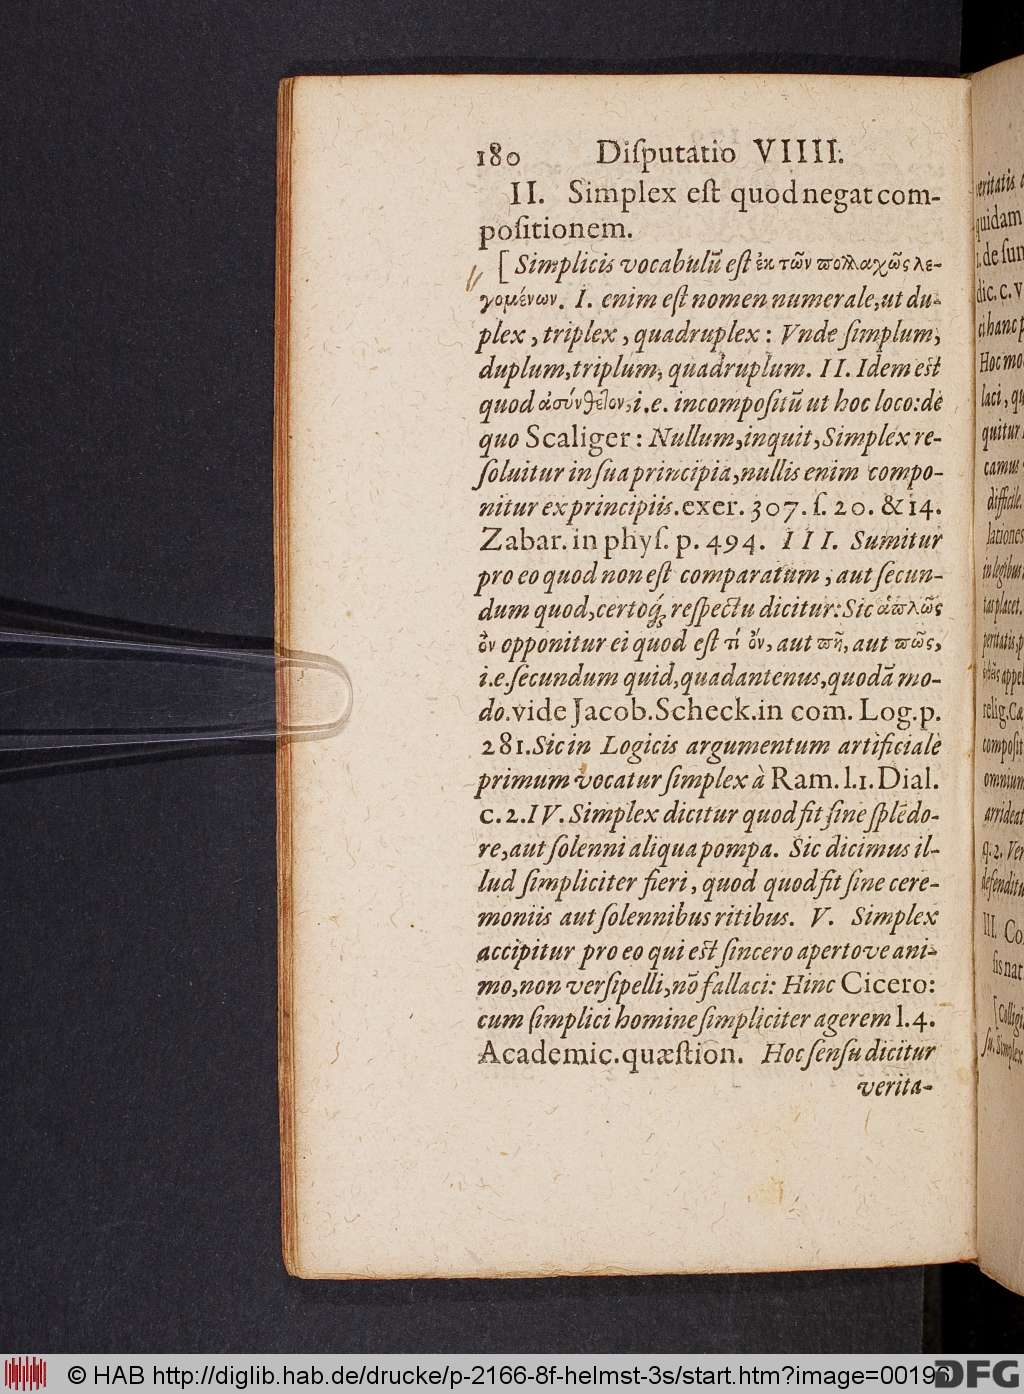 180 Diſputatio VIIII.
II. Simplex eſt quod negat com-
poſitionem.
[ Simplicis vocabulū eſt ἐκ τῶν πολλαχῶς λε-
γομένων. I. enim eſt nomen numerale, ut du-
plex, triplex, quadruplex: Vnde ſimplum,
duplum, triplum, quadruplum. II. Idem eſt
quod ἀσύνθετον, i.e. incompoſitū ut hoc loco: de
quo Scaliger: Nullum, inquit, Simplex re-
ſoluitur in ſua principia, nullis enim compo-
nitur ex principiis. exer. 307. ſ. 20. & 14.
Zabar. in phyſ. p. 494. III. Sumitur
pro eo quod non eſt comparatum, aut ſecun-
dum quod, certoq́ꝫ reſpectu dicitur: Sic ἁπλῶς
ὂν opponitur ei quod eſt τί ὄν, aut πῆ, aut πῶς,
i.e. ſecundum quid, quadantenus, quodā mo-
do. vide Jacob. Scheck. in com. Log. p.
281. Sic in Logicis argumentum artificiale
primum vocatur ſimplex à Ram. l. 1. Dial.
c. 2. IV. Simplex dicitur quod fit ſine ſplēdo-
re, aut ſolenni aliqua pompa. Sic dicimus il-
lud ſimpliciter fieri, quod quod fit ſine cere-
moniis aut ſolennibus ritibus. V. Simplex
accipitur pro eo qui eſt ſincero apertove ani-
mo, non verſipelli, nō fallaci: Hinc Cicero:
cum ſimplici homine ſimpliciter agerem l. 4.
Academic. quæſtion. Hoc ſenſu dicitur
verita-
eritatis
quidam
de ſun
dic. c. v
ci hanc p
Hoc mo
laci, qu
quitur
camus
difficile.
lationes
in legibus
tas placet.
peritatis, p
appel
relig. Cæ
compoſit
omnium
arrideat
q. 2. Ver
defenditu
III. Co
ſis nat
[Collig
ſu. Simplex
© HAB http://diglib.hab.de/drucke/p-2166-8f-helmst-3s/start.htm?image=00196
DFG